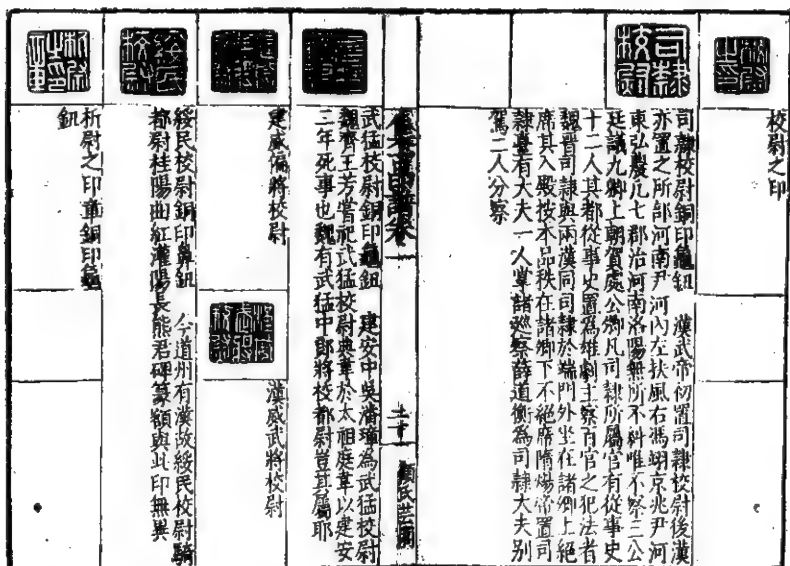 校尉之印
司隸校尉
司隸校尉銅印龜鈕　漢武帝初置司隸校尉後漢
亦置之所部河南尹河內左扶風右馮翊京兆尹河
東弘農凡七郡治河南洛陽無所不糾唯不察三公
廷議九卿上朝賀處公卿凡司隸所屬官有從事史
十二人其都從事史置為雄劇主察百官之犯法者
魏晉司隸與兩漢同司隸於端門外坐在諸卿上絕
席其入殿按本品秩在諸卿下不絕席隋煬帝置司
隸臺有大夫一人掌諸巡察薛道衡為司隸大夫別
駕二人分察
二十一
顧氏芸閣
武猛校尉銅印龜鈕　建安中吳潘璋為武猛校尉
魏齊王芳嘗祀武猛校尉典韋於太祖庭韋以建安
二年死事也魏有武猛中郎將校都尉豈其屬耶
建威偏將校尉
漢威武將校尉
綏民校尉
綏民校尉銅印鼻鈕　今道州有漢故綏民校尉騎
都尉桂陽曲紅灌陽長熊君碑篆額與此印無異
折尉之印章銅印龜
鈕